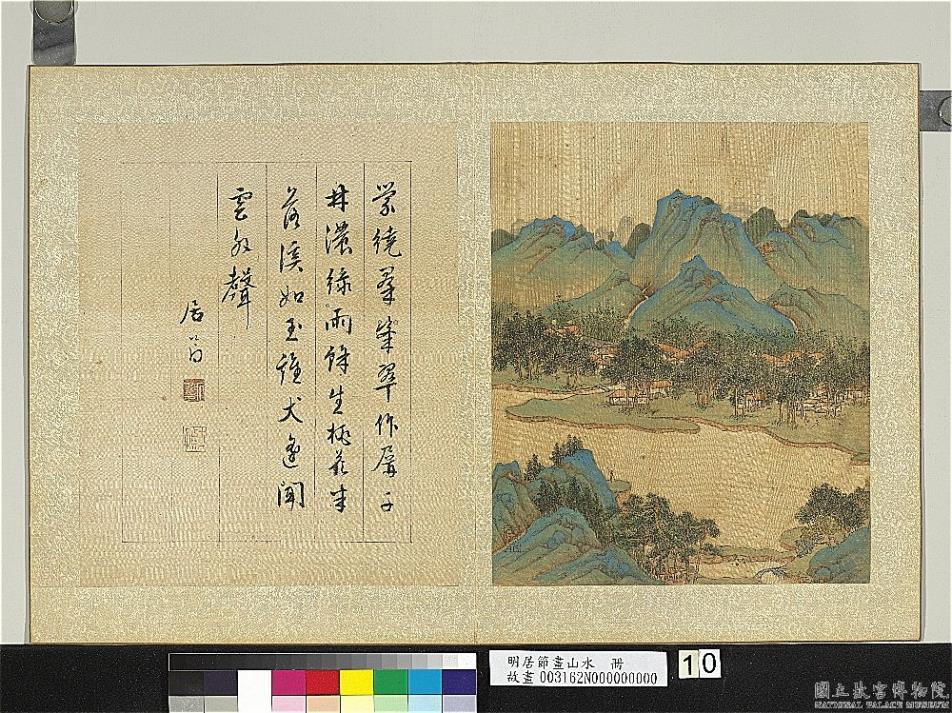 縈繞羣峯翠作層千
林濃綠雨餘生桃花半
落溪如玉雞犬遙聞
雲外聲
居節
明居節畫山水 冊
故畫003162N000000000
10
國立故宮博物院
NATIONAL PALACE MUSEUM